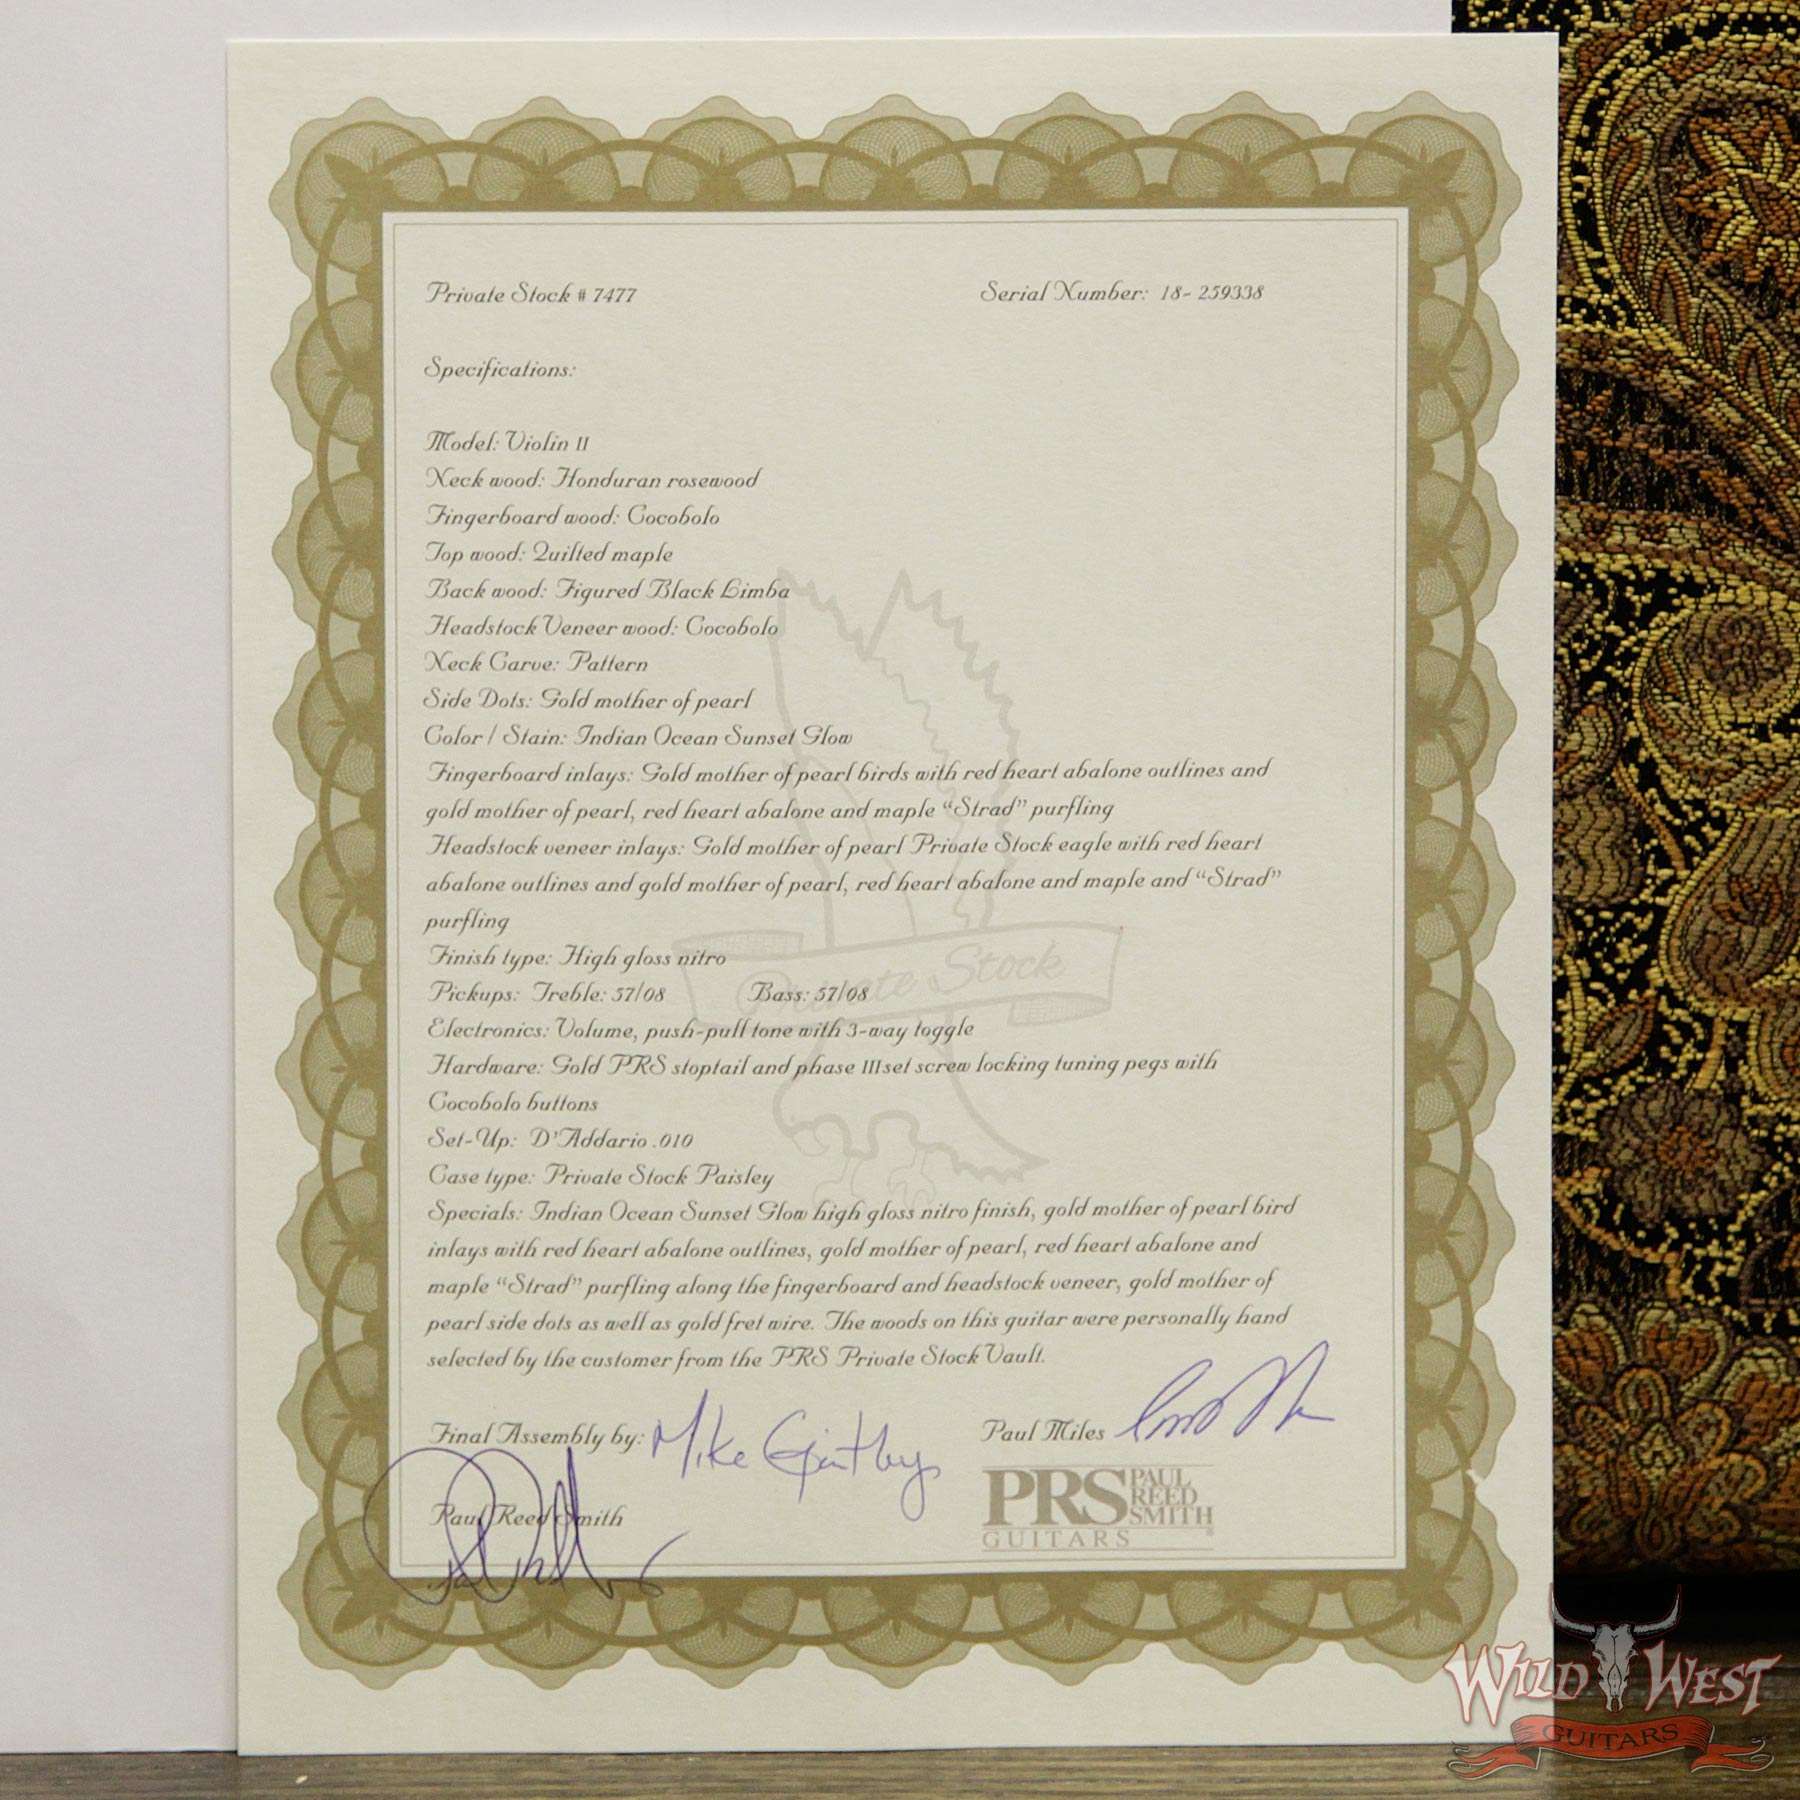 Private Stock # 7477 Serial Number: 18- 259338
Specifications:
Model: Violin II
Neck wood: Honduran rosewood
Fingerboard wood: Cocobolo
Top wood: Quilted maple
Back wood: Figured Black Limba
Headstock Veneer wood: Cocobolo
Neck Carve: Pattern
Side Dots: Gold mother of pearl
Color / Stain: Indian Ocean Sunset Glow
Fingerboard inlays: Gold mother of pearl birds with red heart abalone outlines and
gold mother of pearl, red heart abalone and maple “Strad” purfling
Headstock veneer inlays: Gold mother of pearl Private Stock eagle with red heart
abalone outlines and gold mother of pearl, red heart abalone and maple and “Strad”
purfling
Finish type: High gloss nitro
Private Stock
Pickups: Treble: 57/08 Bass: 57/08
Electronics: Volume, push-pull tone with 3-way toggle
Hardware: Gold PRS stoptail and phase III set screw locking tuning pegs with
Cocobolo buttons
Set-Up: D'Addario .010
Case type: Private Stock Paisley
Specials: Indian Ocean Sunset Glow high gloss nitro finish, gold mother of pearl bird
inlays with red heart abalone outlines, gold mother of pearl, red heart abalone and
maple “Strad” purfling along the fingerboard and headstock veneer, gold mother of
pearl side dots as well as gold fret wire. The woods on this guitar were personally hand
selected by the customer from the PRS Private Stock Vault.
Final Assembly by: Mike Paul Miles
Paul Reed Smith
PRS PAUL
REED
SMITH
GUITARS
WILD WEST
GUITARS